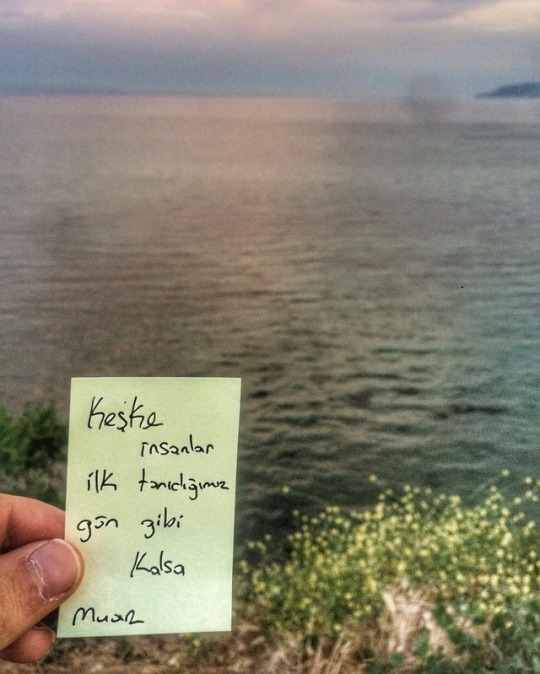 Keşke
insanlar
ilk tanıdığımız
gün gibi
Kalsa